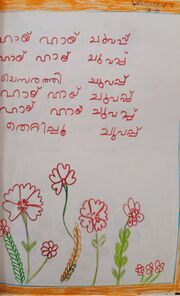 ഹായ് ഹായ് ചുവപ്പ്
ഹായ് ഹായ് ചുവപ്പ്
ചെമ്പരത്തി ചുവപ്പ്
ഹായ് ഹായ് ചുവപ്പ്
ഹായ് ഹായ് ചുവപ്പ്
തെച്ചിപ്പൂ ചുവപ്പ്